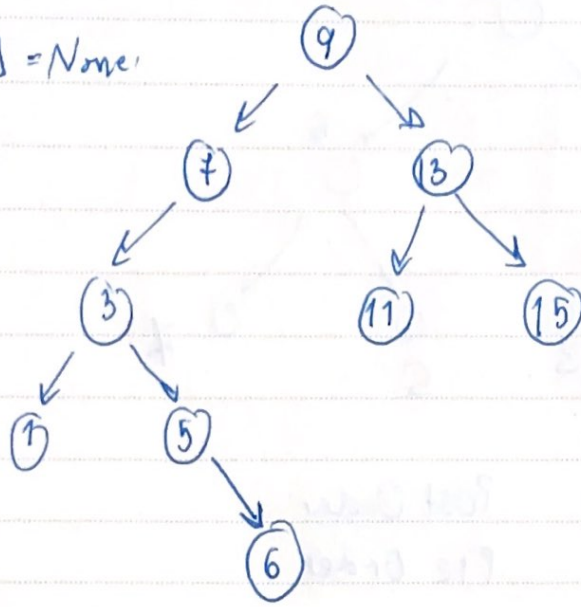 = None
9
7 13
3 11 15
1 5
6